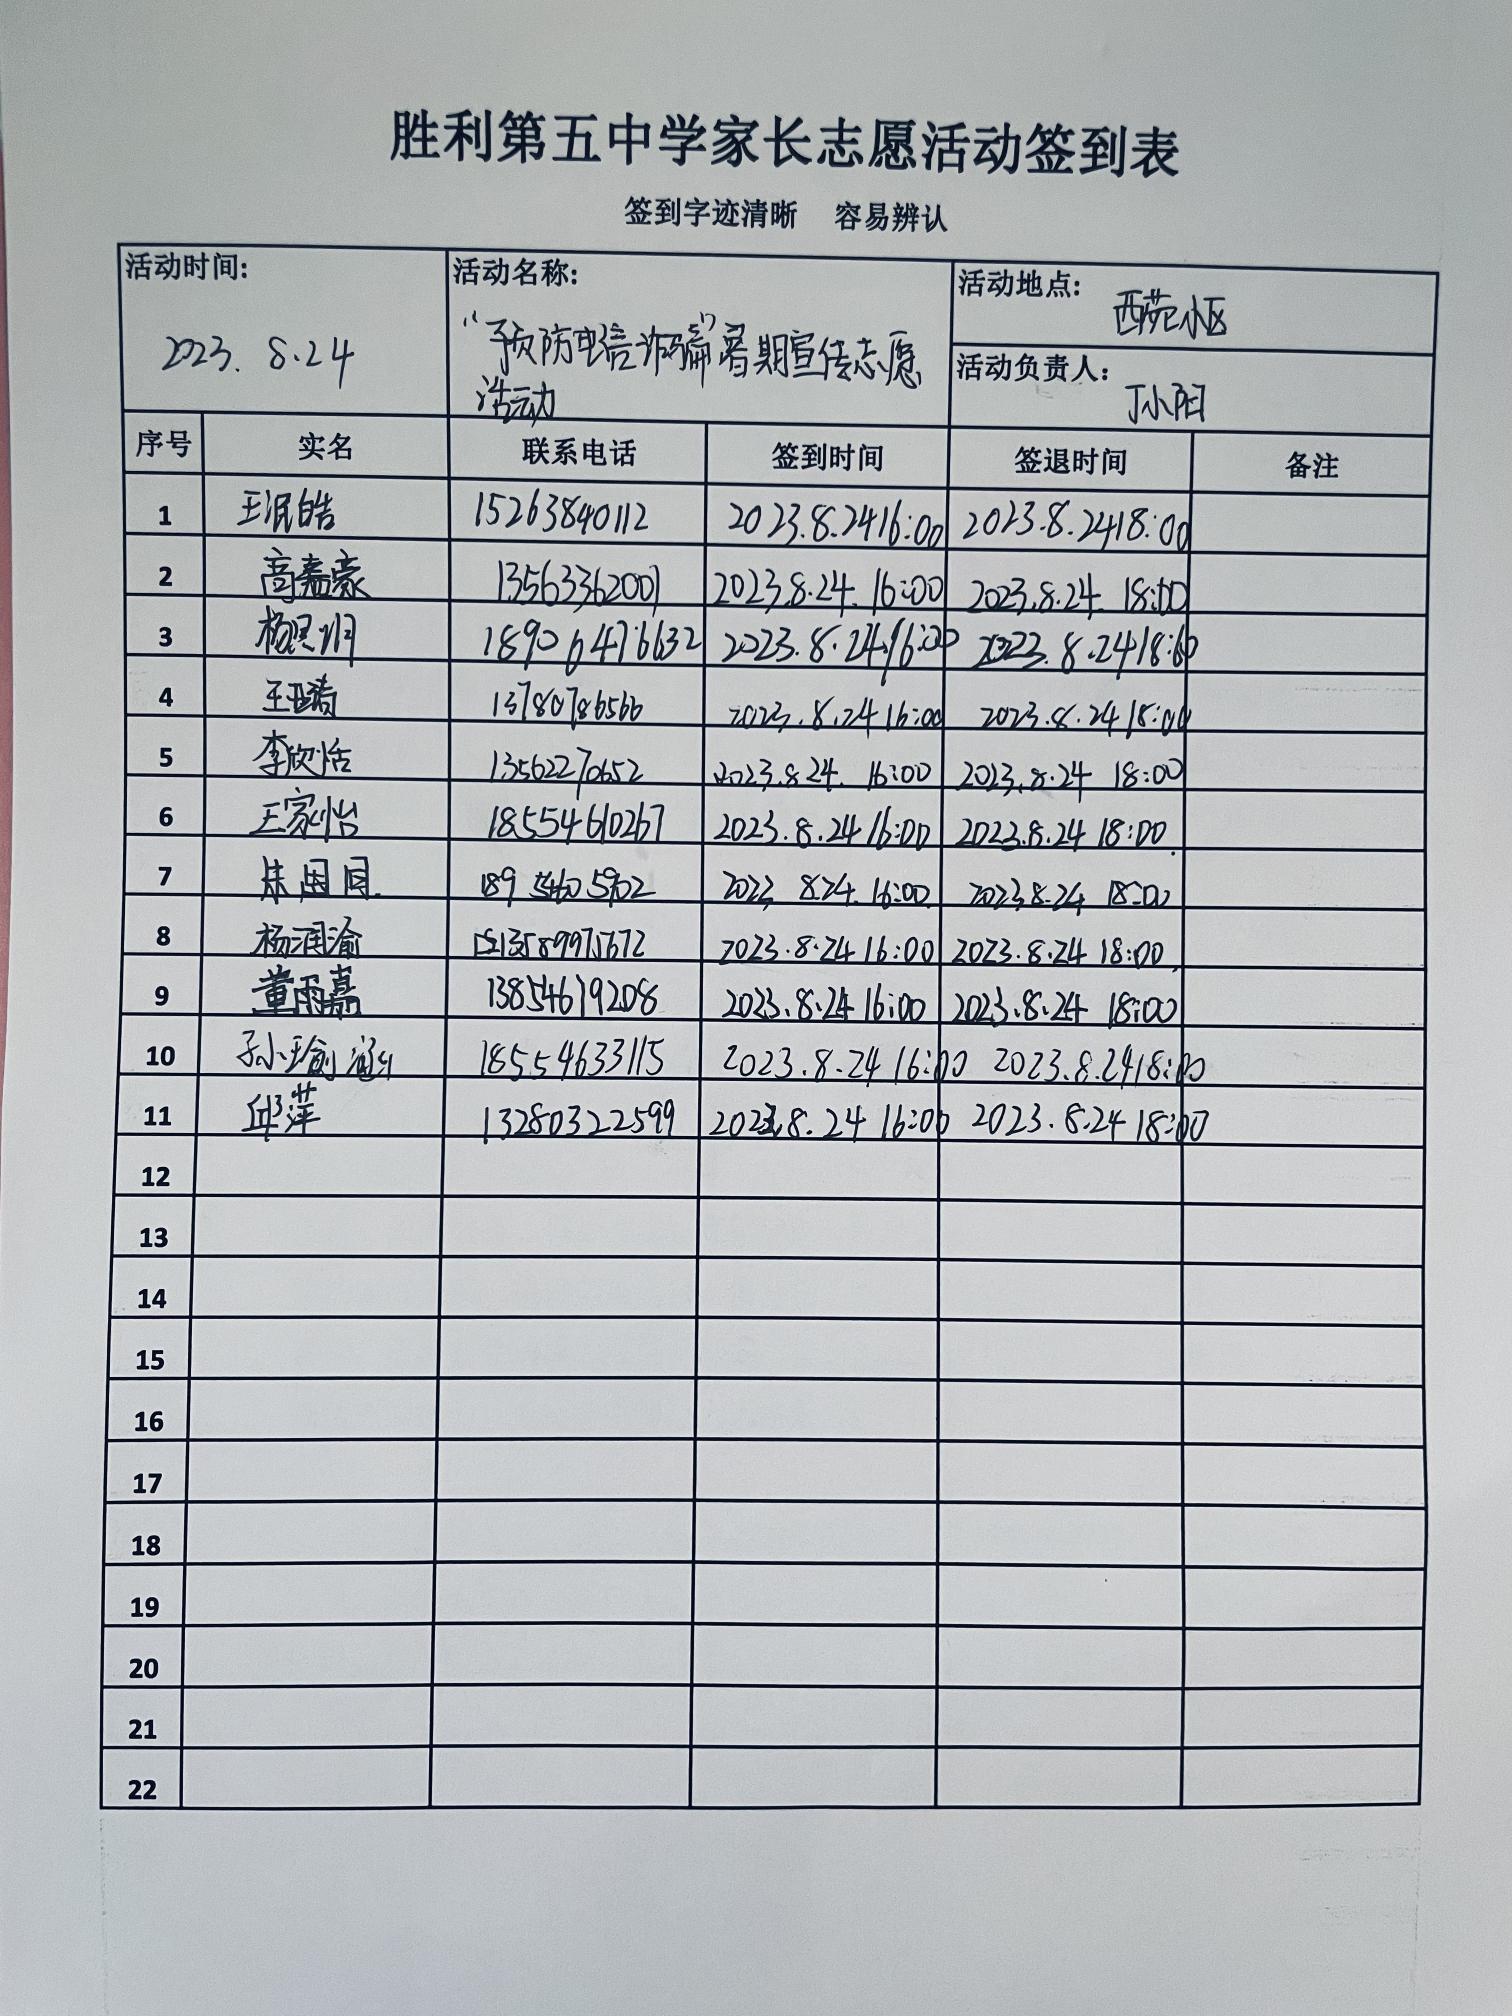 胜利第五中学家长志愿活动签到表
签到字迹清晰 容易辨认
活动时间: 2023. 8.24
活动名称: “预防电信诈骗”暑期宣传志愿
活动
活动地点: 西苑小区
活动负责人: 丁小阳
序号 实名 联系电话 签到时间 签退时间 备注
1 王泯皓 15263840112 2023.8.24 16:00 2023.8.24 18:00
2 高嘉豪 13563362001 2023.8.24. 16:00 2023.8.24. 18:00
3 18906476632 2023.8.24 16:00 2023.8.24 18:00
4 13780786566 2023.8.24 16:00 2023.8.24 18:00
5 李欣恬 13562270652 2023.8.24. 16:00 2023.8.24 18:00
6 王家怡 18554610267 2023.8.24 16:00 2023.8.24 18:00
7 18954605902 2023 8.24. 16:00 2023.8.24 18:00
8 杨润渝 13589975672 2023.8.24 16:00 2023.8.24 18:00
9 董雨嘉 13854619208 2023.8.24 16:00 2023.8.24 18:00
10 18554633115 2023.8.24 16:00 2023.8.24 18:00
11 邱萍 13280322599 2023.8.24 16:00 2023.8.24 18:00
12
13
14
15
16
17
18
19
20
21
22